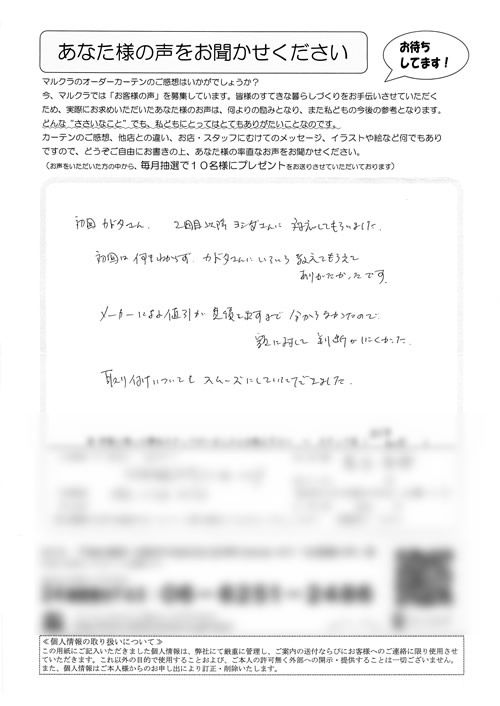 あなた様の声をお聞かせください
お待ち
してます!
マルクラのオーダーカーテンのご感想はいかがでしょうか?
今、マルクラでは「お客様の声」を募集しています。皆様のすてきな暮らしづくりをお手伝いさせていただく
ため、実際にお求めいただいたあなた様のお声は、何よりの励みとなり、また私どもの今後の参考となります。
どんな“ささいなこと”でも、私どもにとってはとてもありがたいことなのです。
カーテンのご感想、他店との違い、お店・スタッフにむけてのメッセージ、イラストや絵など何でもあり
ますので、どうぞご自由にお書きの上、あなた様の率直なお声をお聞かせください。
(お声をいただいた方の中から、毎月抽選で10名様にプレゼントをお送りさせていただいております)
初回 カドタさん、 2回目以降 ヨシダさんに 対応してもらいました。
初回は 何もわからず、カドタさんに いろいろ 教えてもらえて
ありがたかったです。
メーカーによる値引が 見積で出すまで 分からなかったので
額に対して 判断がしにくかった。
取り付けについても スムーズにしていただきました。
≪個人情報の取り扱いについて≫
この用紙にご記入いただきました個人情報は、弊社にて厳重に管理し、ご案内の送付ならびにお客様へのご連絡に限り使用させ
ていただきます。これ以外の目的で使用することおよび、ご本人の許可無く外部への開示・提供することは一切ございません。
また、個人情報はご本人様からのお申し出により訂正・削除いたします。